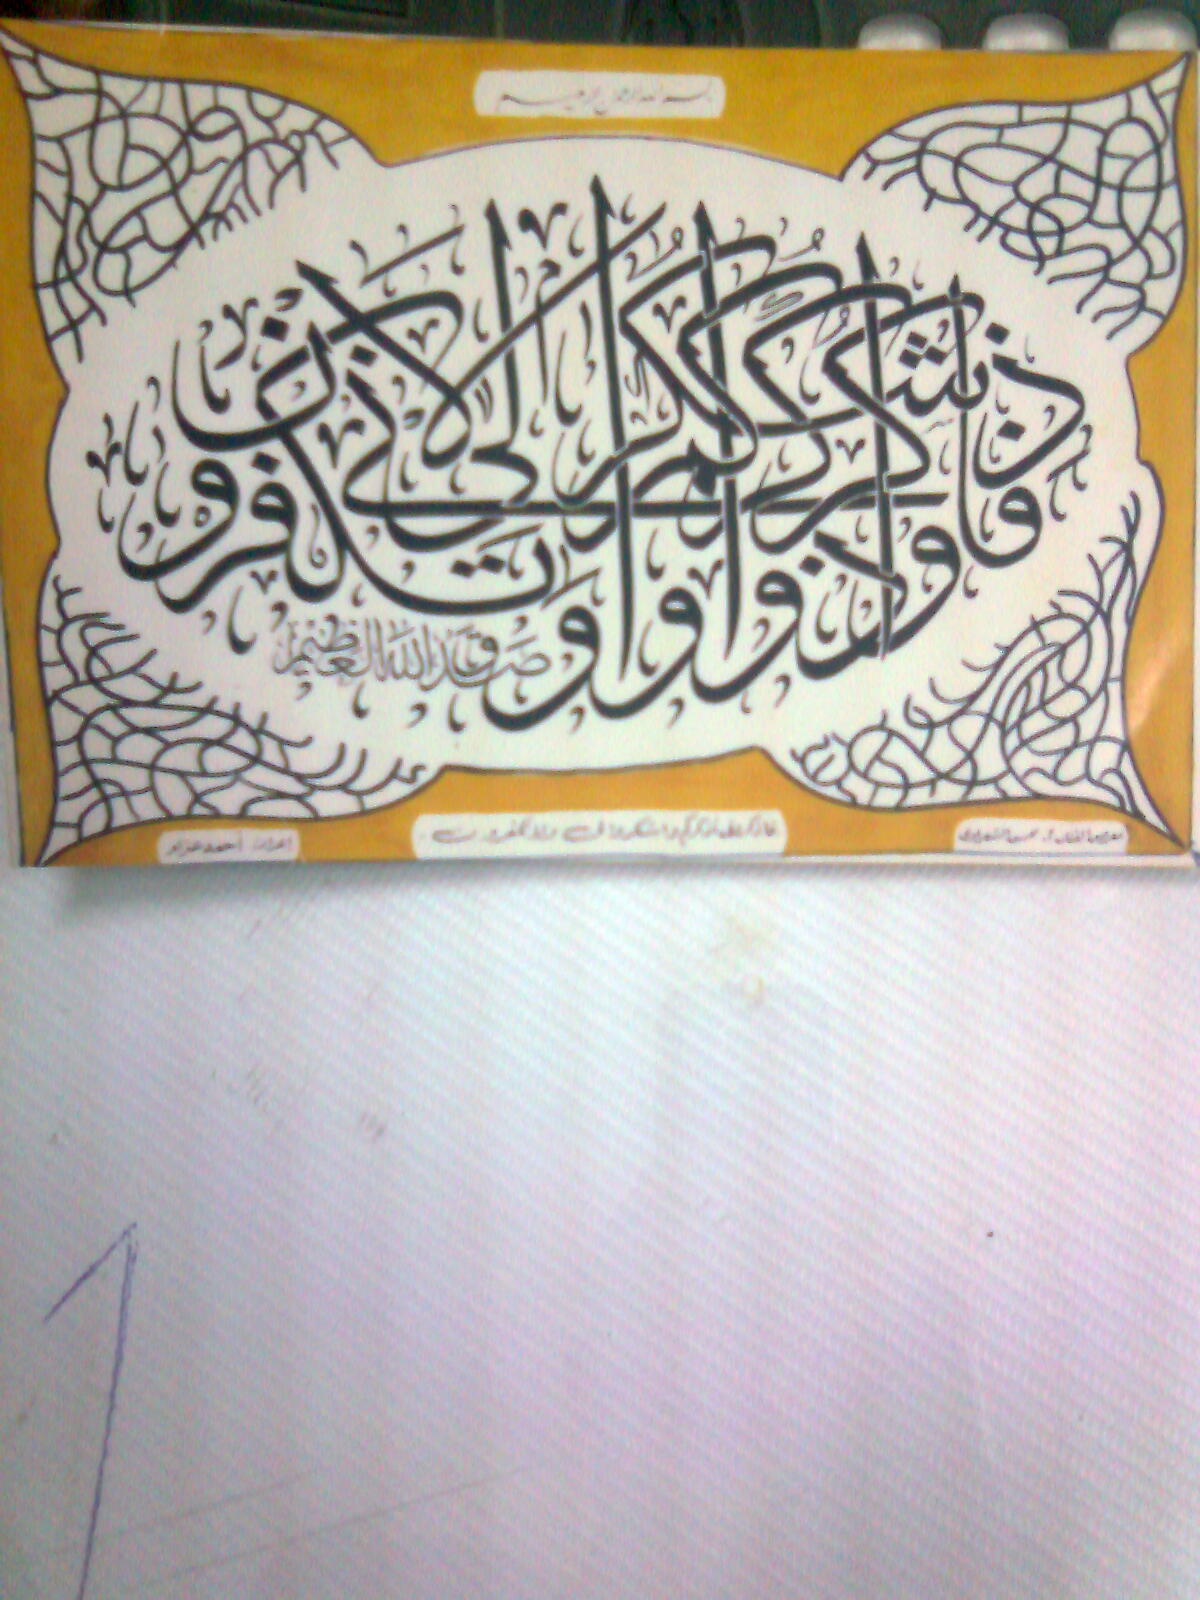 بسم الله الرحمن الرحيم
فاذكروني أذكركم واشكروا لي ولا تكفرون
صدق الله العظيم
فاذكروني أذكركم واشكروا لي ولا تكفرون
إهداء أحمد